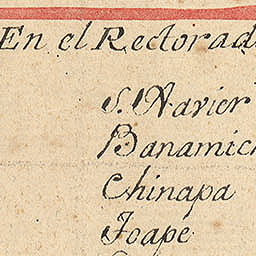 En el Rectorad
S. Xavier
Banamich
Chinapa
Joape